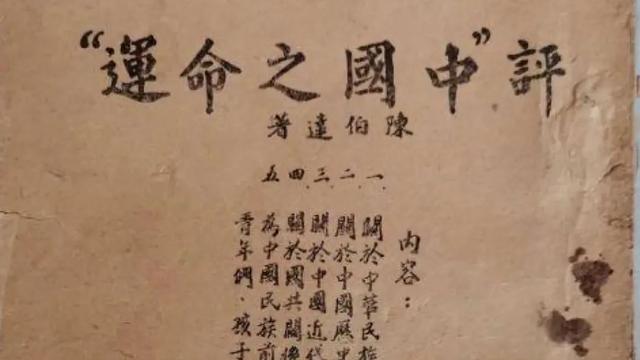 評“中國之命運”
陳伯達著
內容：
一、關於中華民族
二、關於中國歷史
三、關於中國近代
四、關於國共關係
五、為中國民族前
青年們、孩子